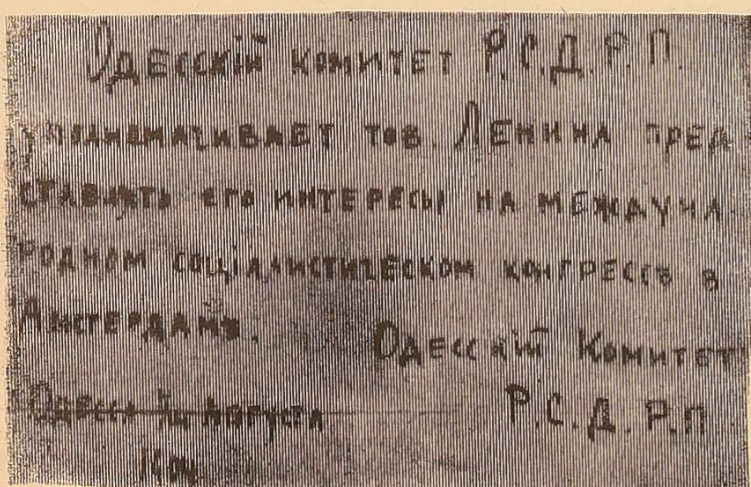 Одесскій комитет Р.С.Д.Р.П.
уполномачивает тов. Ленина пред
ставить его интересы на междуна
родном соціалистическом конгрессѣ в
Амстердамѣ. Одесскій Комитет
Одесса Августа Р.С.Д.Р.П